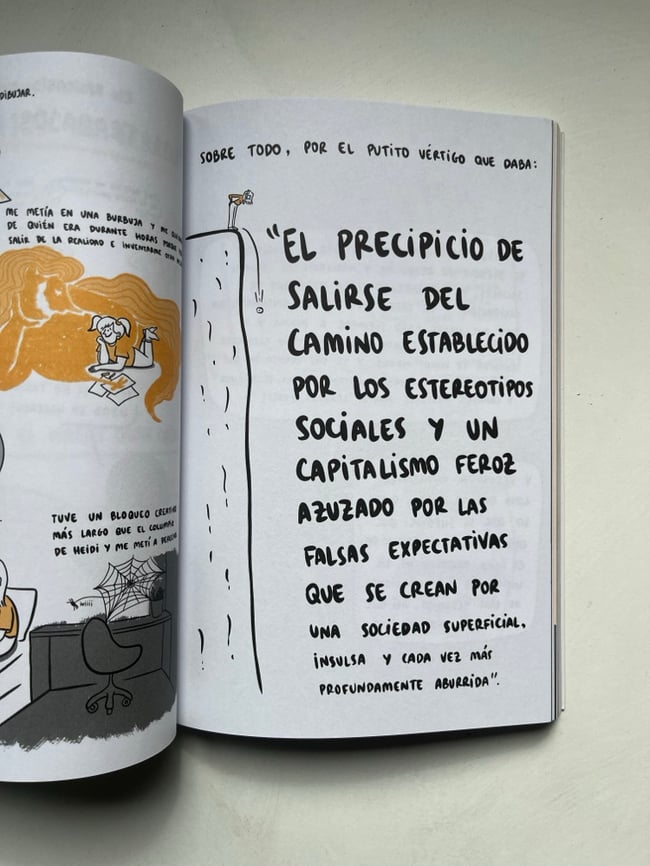 DIBUJAR.
ME METÍA EN UNA BURBUJA Y ME
DE QUIÉN ERA DURANTE HORAS
SALIR DE LA REALIDAD E INVENTARME
TUVE UN BLOQUEO
MÁS LARGO QUE EL
DE HEIDI Y ME METÍ A
SOBRE TODO, POR EL PUTITO VÉRTIGO QUE DABA:
"EL PRECIPICIO DE
SALIRSE DEL
CAMINO ESTABLECIDO
POR LOS ESTEREOTIPOS
SOCIALES Y UN
CAPITALISMO FEROZ
AZUZADO POR LAS
FALSAS EXPECTATIVAS
QUE SE CREAN POR
UNA SOCIEDAD SUPERFICIAL,
INSULSA Y CADA VEZ MÁS
PROFUNDAMENTE ABURRIDA".